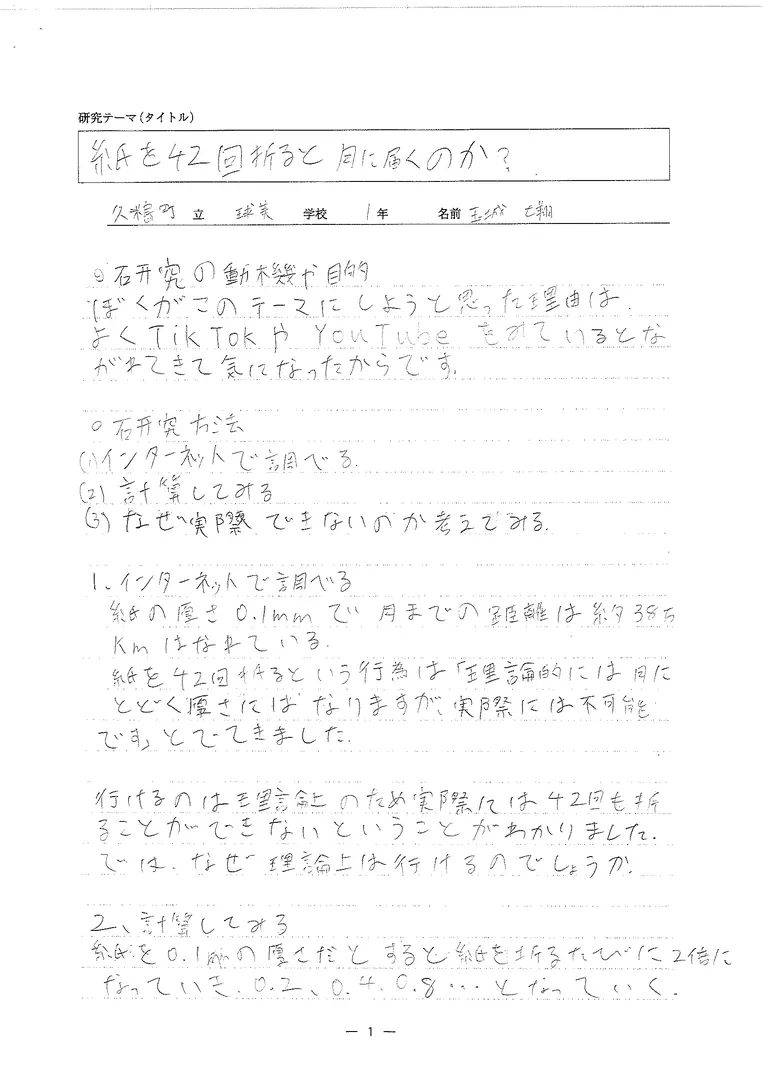 研究テーマ(タイトル)
紙を42回折ると月に届くのか?
久米島町 立 球美 学校 1年 名前 玉城 翔
◦研究の動機や目的
ぼくがこのテーマにしようと思った理由は、
よくTikTokや YouTube をみているとな
がれてきて気になったからです。
◦研究方法
(1)インターネットで調べる
(2)計算してみる
(3)なぜ実際できないのか考えてみる。
1、インターネットで調べる
紙の厚さ0.1mmで月までの距離は約38万
Kmはなれている。
紙を42回折るという行為は「理論的には月に
とどく厚さにはなりますが、実際には不可能
です」とでてきました。
行けるのは理論上のため実際には42回も折
ることができないということがわかりました。
では、なぜ理論上は行けるのでしょうか。
2、計算してみる
紙を0.1mmの厚さだとすると紙を折るたびに2倍に
なっていき、0.2、0.4、0.8…となっていく。
— 1 —